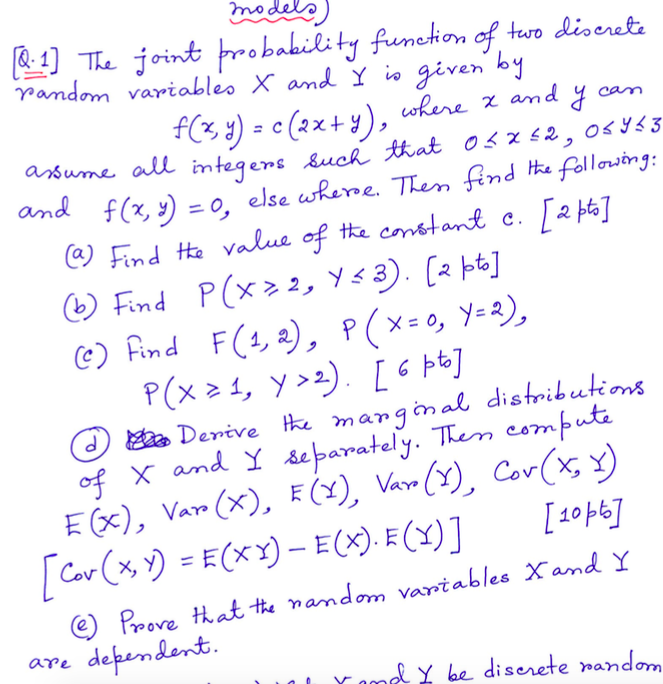 models)
[Q.1] The joint probability function of two discrete
random variables X and Y is given by
f(x, y) = c (2x + y), where x and y can
assume all integers such that 0 ≤ x ≤ 2, 0 ≤ y ≤ 3
and f(x, y) = 0, else where. Then find the following:
(a) Find the value of the constant c. [2 pts]
(b) Find P(X ≥ 2, Y ≤ 3). [2 pts]
(c) Find F(1, 2), P(X = 0, Y = 2),
P(X ≥ 1, Y > 2). [6 pts]
(d) Derive the marginal distributions
of X and Y separately. Then compute
E(X), Var(X), E(Y), Var(Y), Cov(X, Y)
[Cov(X, Y) = E(XY) – E(X). E(Y)] [10 pts]
(e) Prove that the random variables X and Y
are dependent.
X and Y be discrete random